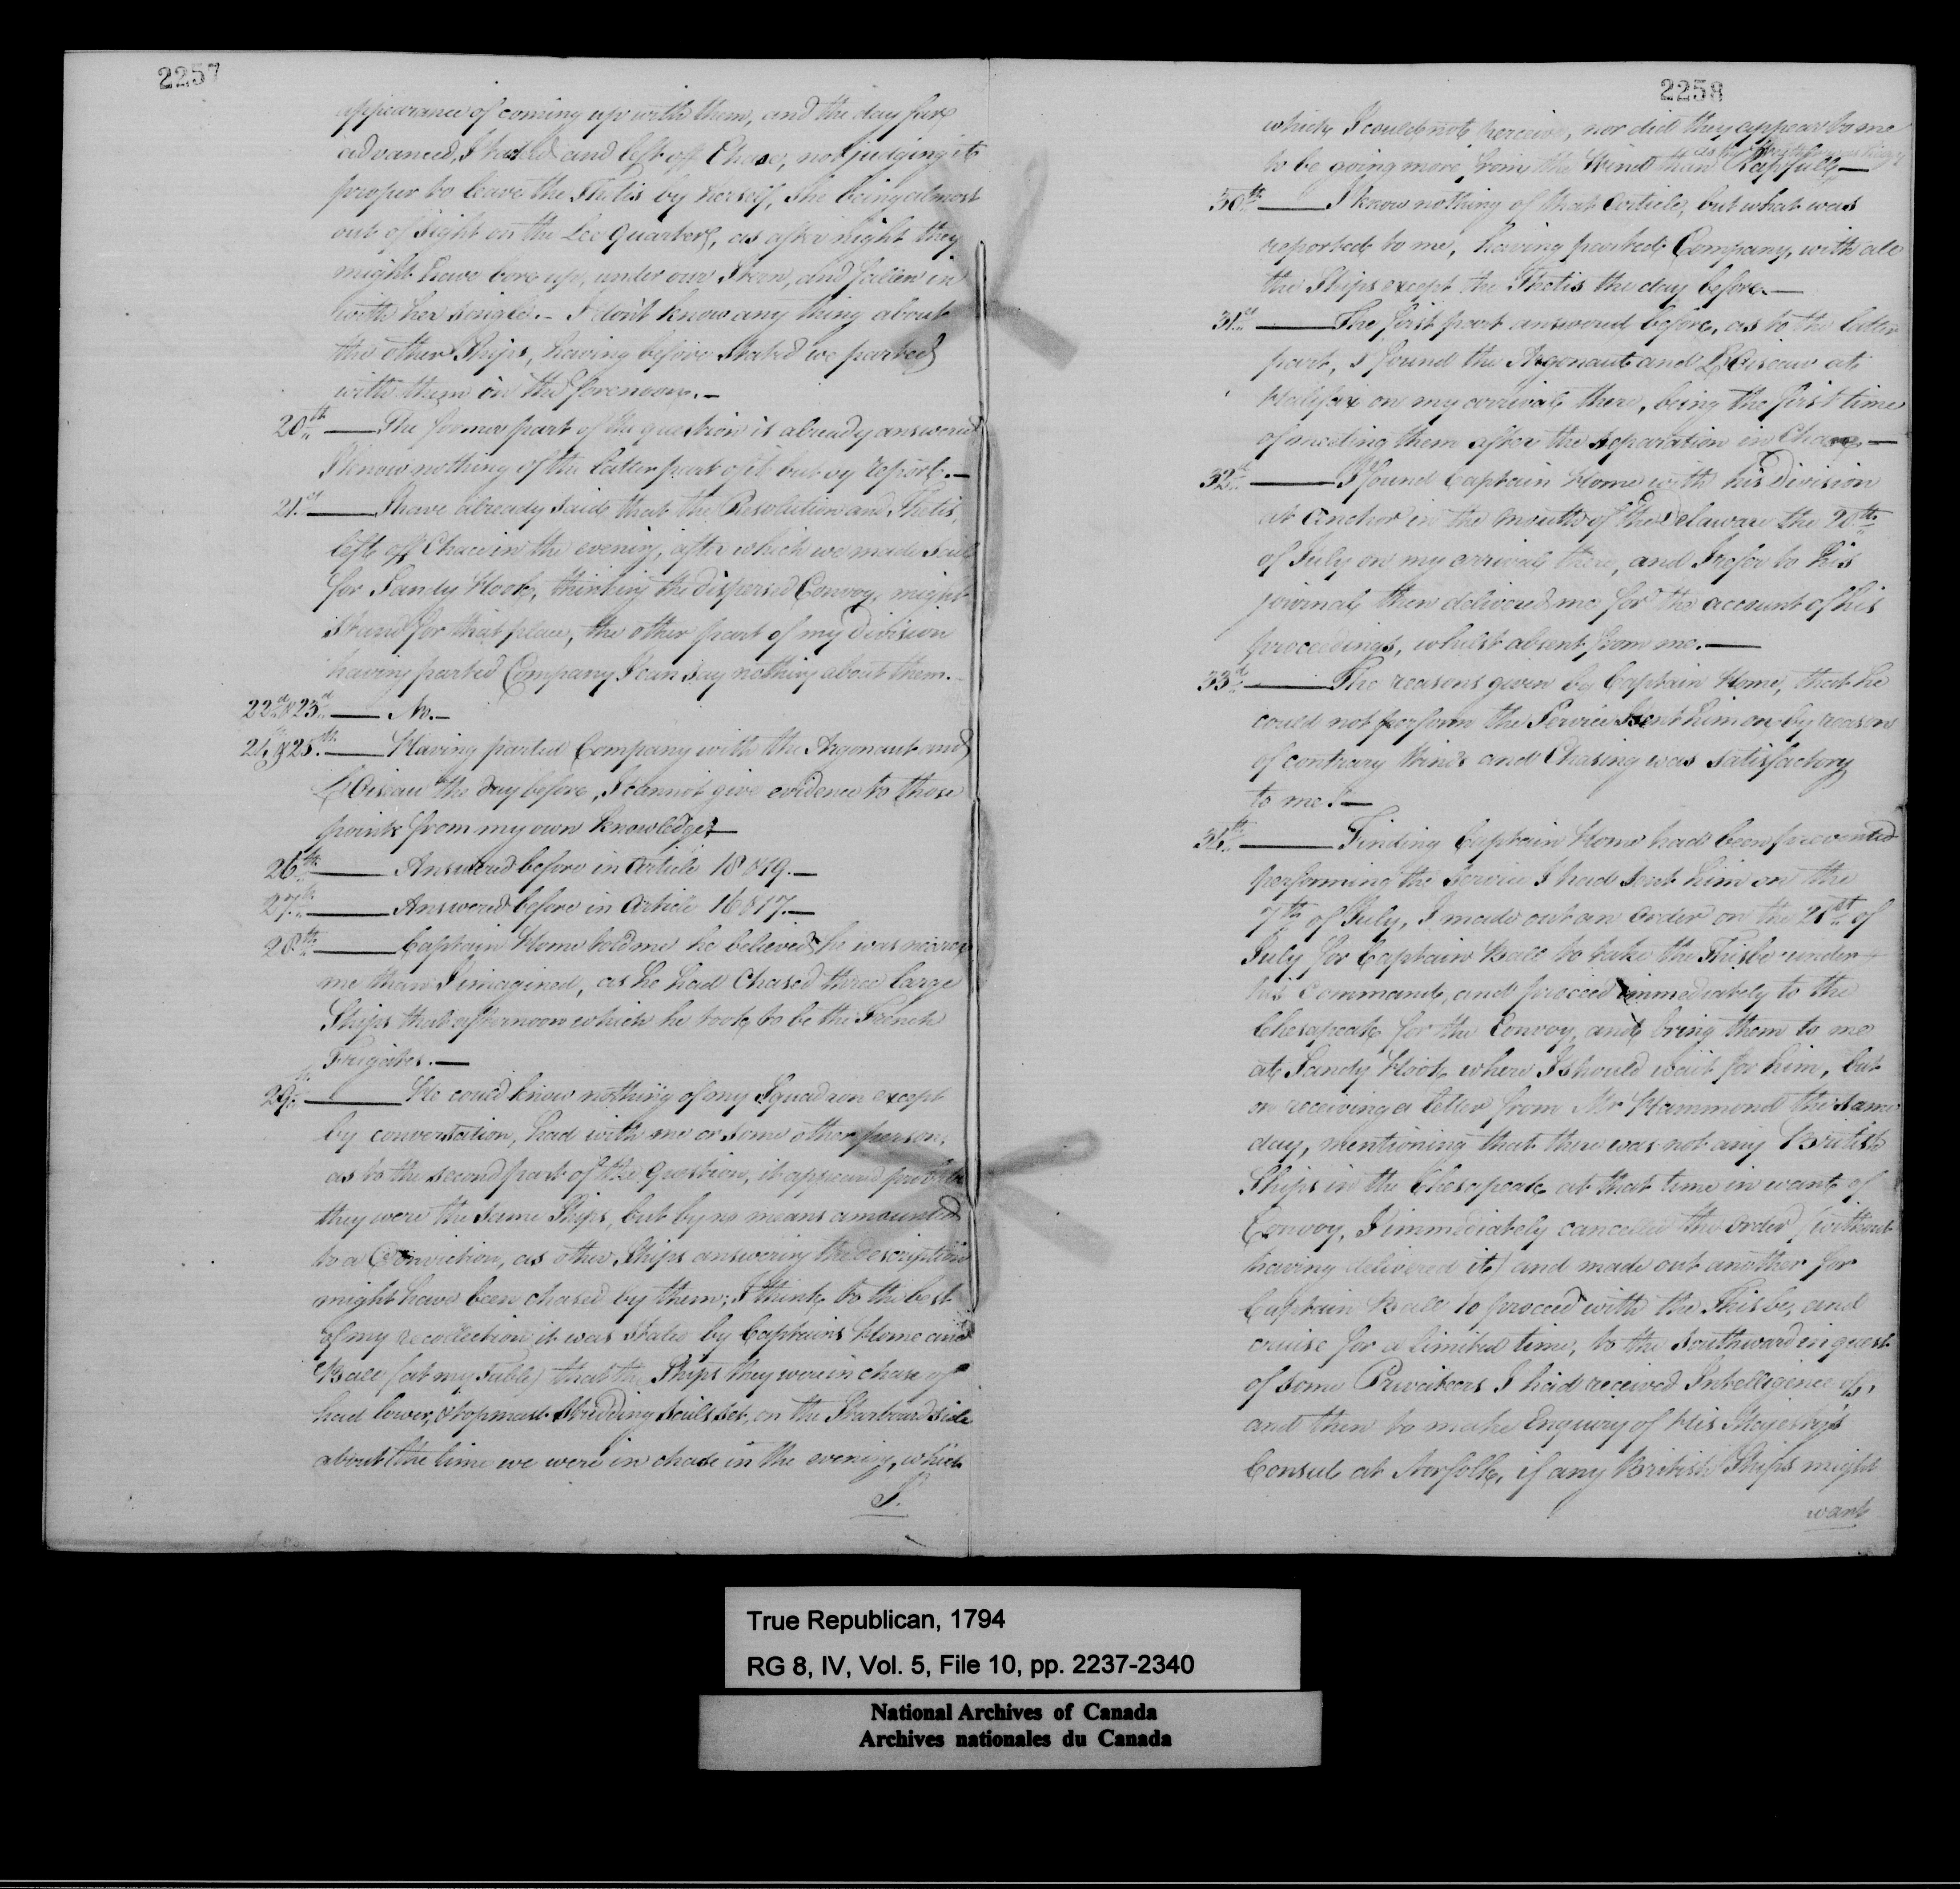 2257
appearance of coming up with them, and the day far
advanced, I hauled and left off Chase, not judging it
proper to leave the Thetis by herself, She being almost
out of sight on the Lee Quarter, as after night they
might have bore up, under our Stern, and fallen in
with her single.- I don't know any thing about
the other Ships, having before Stated we parted
with them in the forenoon.-
20th — The former part of the question is already answered
I know nothing of the latter part of it but by report.-
21st — I have already said that the Resolution and Thetis,
left off Chace in the evening, after which we made Sail
for Sandy Hook, thinking the dispersed Convoy, might
stand for that place, the other part of my division
having parted Company I can say nothing about them.-
22d & 23d — No.-
24th & 25th — Having parted Company with the Argonaut and
L'Oiseau the day before, I cannot give evidence to those
points from my own knowledge.—
26th — Answered before in Article 18 & 19.—
27th — Answered before in Article 16 & 17.—
28th — Captain Home told me he believed he was nearer
me than I imagined, as he had Chased three large
Ships that afternoon which he took to be the French
Frigates.—
29th — He could know nothing of my Squadron except
by conversation, had with me or some other person,
as to the second part of the Question, it appeared probable
they were the same Ships, but by no means amounted
to a Conviction, as other Ships answering the description
might have been chased by them; I think to the best
of my recollection it was stated by Captains Home and
Ball (at my Table) that the Ships they were in chase of
had lower, & topmast Studding Sails set, on the Starboard side
about the time we were in chase in the evening, which
I.
2258
which I could not perceive, nor did they appear to me
to be going more from the Wind than Rapfull—
30th — I know nothing of that Article, but what was
reported to me, having parted Company, with all
the Ships except the Thetis the day before.—
31st — The first part answered before, as to the latter
part, I found the Argonaut and L'Oiseau at
Halifax on my arrival there, being the first time
of meeting them after the separation in Chace.—
32d — I found Captain Home with his Division
at Anchor in the mouth of the Delaware the 20th
of July on my arrival there, and I refer to his
journal then delivered me for the account of his
proceedings, whilst absent from me.—
33d — The reasons given by Captain Home, that he
could not perform the Service I sent him on by reason
of contrary Winds and Chasing was satisfactory
to me.—
34th — Finding Captain Home had been prevented
performing the service I had sent him on the
7th of July, I made out an Order on the 21st of
July for Captain Ball to take the Thisbe under
his Command, and proceed immediately to the
Chesapeak for the Convoy, and bring them to me
at Sandy Hook where I should wait for him, but
on receiving a letter from Mr Hammond the same
day, mentioning that there was not any British
Ships in the Chesapeak at that time in want of
Convoy, I immediately cancelled the Order (without
having delivered it) and made out another for
Captain Ball to proceed with the Thisbe, and
cruise for a limited time, to the Southward in quest
of some Privateers I had received Intelligence of,
and then to make Enquiry of His Majesty's
Consul at Norfolk, if any British Ships might
want
True Republican, 1794
RG 8, IV, Vol. 5, File 10, pp. 2237-2340
National Archives of Canada
Archives nationales du Canada